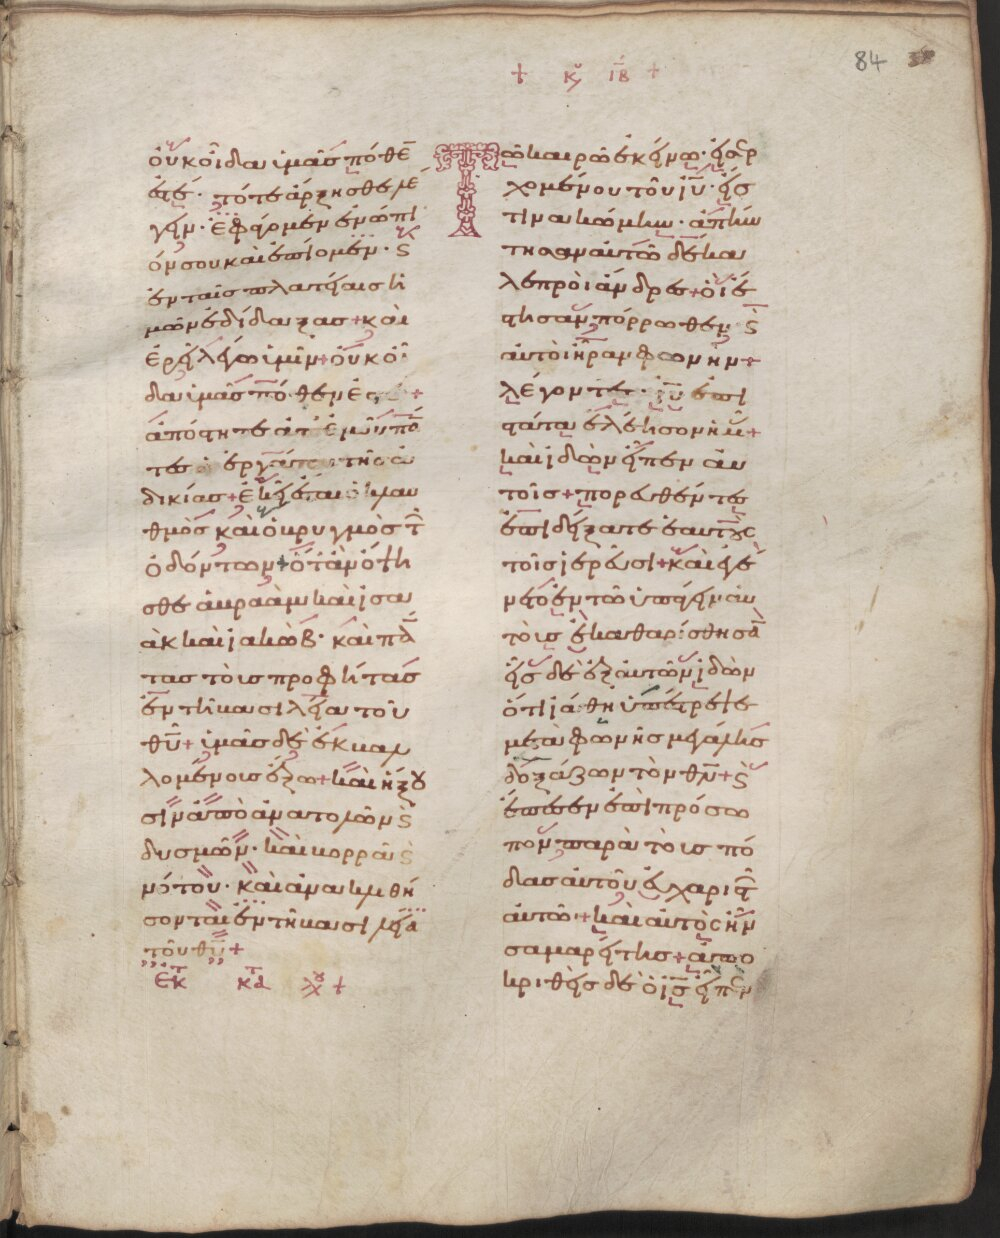 + κυ ιβ +
84
οὐκ οἶδα ὑμᾶς πόθεν
ἐστέ· τότε ἄρξησθε λέ
γειν· ἐφάγομεν ἐνώπι
όν σου καὶ ἐπίομεν· ϗ
ἐν ταῖς πλατείαις ἡ
μῶν ἐδίδαξας + καὶ
ἐρεῖ λέγω ὑμῖν + οὐκ οἶ
δα ὑμᾶς πόθεν ἐστέ +
ἀπόστητε ἀπ ἐμοῦ πάν
τες οἱ ἐργάται τῆς ἀ
δικίας + ἐκεῖ ἔσται ὁ κλαυ
θμὸς καὶ ὁ βρυγμὸς τῶν
ὀδόντων + ὅταν ὄψη
σθε ἀβραὰμ καὶ ἰσα
ακ καὶ ἰακὼβ· καὶ πάν
τας τοὺς προφήτας
ἐν τῇ βασιλεία τοῦ
θῦ + ὑμᾶς δὲ ἐκβαλ
λομένοις ἔξω + καὶ ἥξου
σιν ἀπὸ ἀνατολῶν ϗ
δυσμῶν· καὶ βορρᾶ ϗ
νότου· καὶ ἀνακλιθή
σονται ἐν τῇ βασιλεία
τοῦ θῦ +
Τῶ καιρῶ ἐκείνω· εἰσερ
χομένου τοῦ ιῦ· εἴς
τινα κώμην· ἀπήν
τησαν αὐτῶ δέκα
λεπροὶ ἄνδρες + οἳ ἔ
στησαν πόρρωθεν ϗ
αὐτοὶ ἦραν φωνὴν +
λέγοντες· ιῦ ἐπι
στάτα ἐλέησον ἡμᾶς +
καὶ ἰδὼν εἶπεν αὐ
τοῖς + πορευθέντες
ἐπιδείξατε ἑαυτοὺς
τοῖς ἱερεῦσι + καὶ ἐγέ
νετο ἐν τῶ ὑπάγειν αὐ
τοὺς ἐκαθαρίσθησαν
εἷς δὲ ἐξ αὐτῶν ἰδὼν
ὅτι ἰάθη ὑπέστρεψε
μετὰ φωνῆς μεγάλης
δοξάζων τὸν θν + ϗ
ἔπεσεν ἐπὶ πρόσω
πον παρὰ τοὺς πό
δας αὐτοῦ εὐχαριστῶν
αὐτῶ + καὶ αὐτὸς ἦν
σαμαρείτης + ἀπο
κριθεὶς δὲ ὁ ις εἶπεν